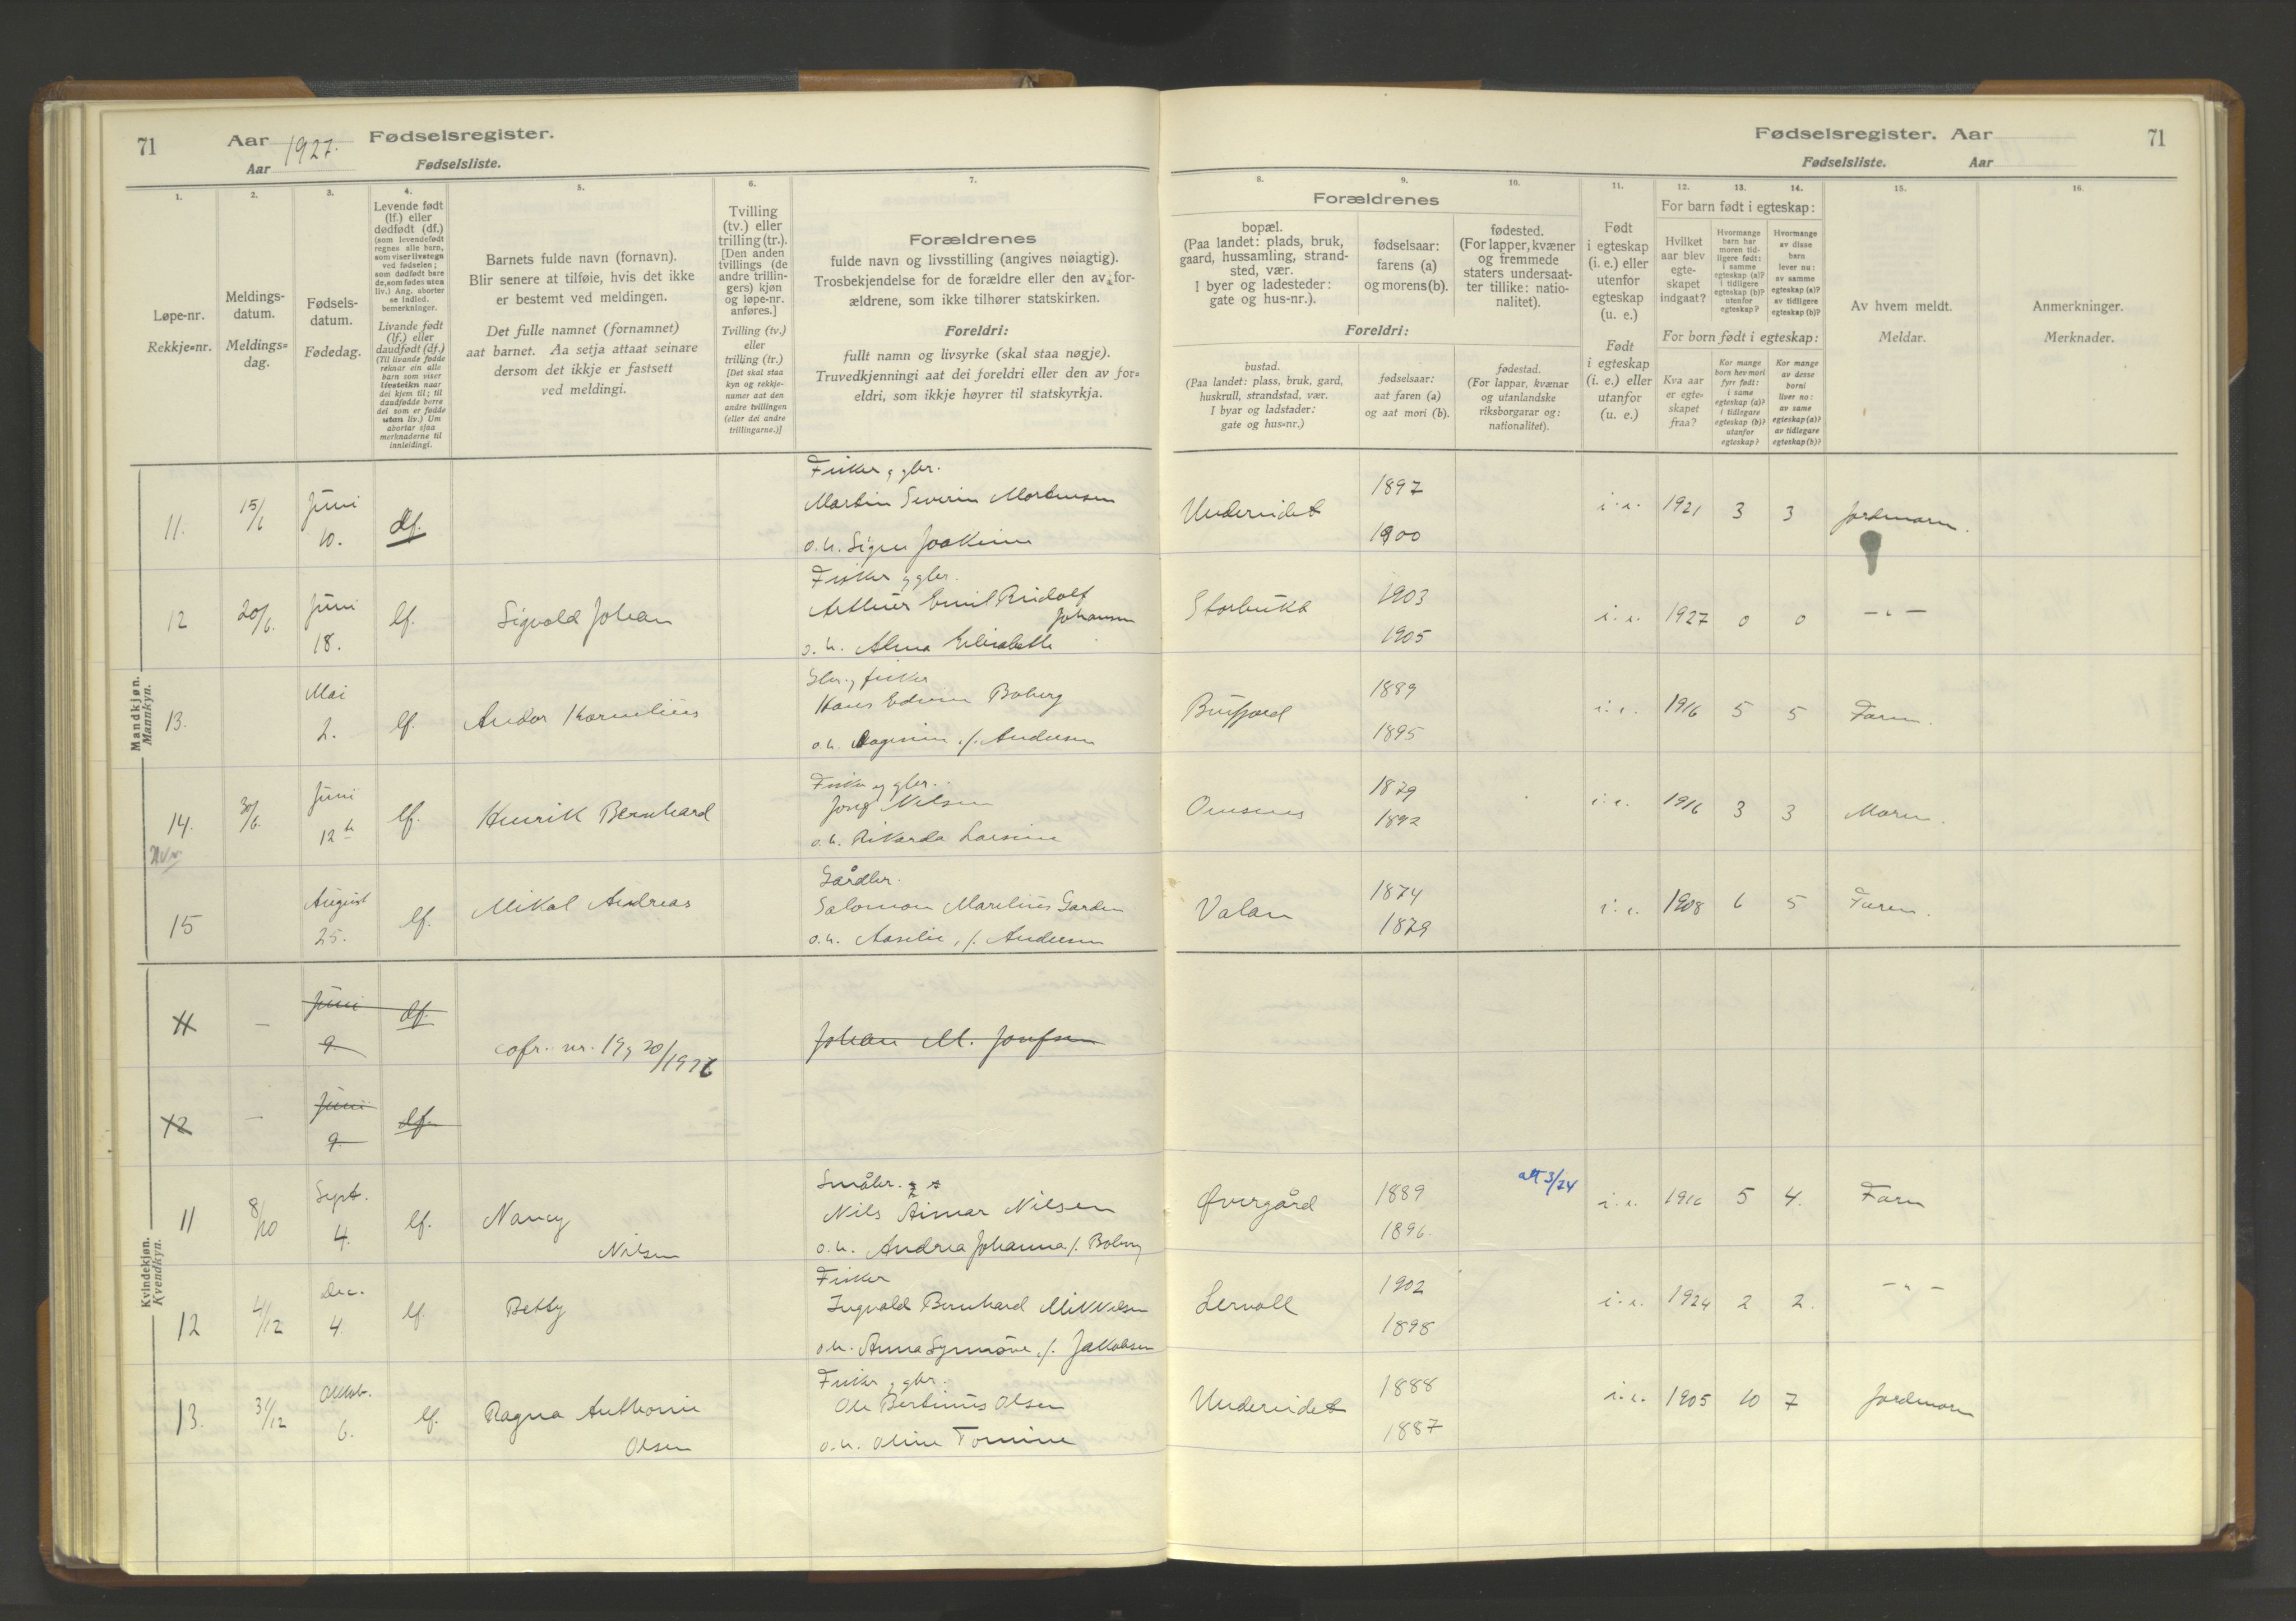 71 Aar 1927. Fødselsregister.
Aar Fødselsliste.
Fødselsregister. Aar 71
Fødselsliste. Aar
1. 2. 3. 4. 5. 6. 7. 8. 9. 10. 11. 12. 13. 14. 15. 16.
Løpe-nr.
Rekkje=nr.
Meldings-
datum.
Meldings=
dag.
Fødsels-
datum.
Fødedag.
Levende født
(lf.) eller
dødfødt (df.)
(som levendefødt
regnes alle barn,
som viser livstegn
ved fødselen;
som dødfødt bare
de, som fødes uten
liv.) Ang. aborter
se indled.
bemerkninger.
Livande født
(lf.) eller
daudfødt (df.)
(Til livande fødde
reknar ein alle
barn som viser
livsteikn naar
dei kjem til; til
daudfødde berre
dei som er fødde
utan liv.) Um
abortar sjaa
merknaderne til
innleidingi.
Barnets fulde navn (fornavn).
Blir senere at tilføie, hvis det ikke
er bestemt ved meldingen.
Det fulle namnet (fornamnet)
aat barnet. Aa setja attaat seinare
dersom det ikkje er fastsett
ved meldingi.
Tvilling
(tv.) eller
trilling (tr.).
[Den anden
tvillings (de
andre trillin-
gers) kjøn
og løpe-nr.
anføres.]
Tvilling (tv.)
eller
trilling (tr.)
[Det skal staa
kyn og rekkje-
numer aat den
andre tvillingen
(eller dei andre
trillingarne.)]
Forældrenes
fulde navn og livsstilling (angives nøiagtig).
Trosbekjendelse for de forældre eller den av for-
ældrene, som ikke tilhører statskirken.
Foreldri:
fullt namn og livsyrke (skal staa nøgje).
Truvedkjenningi aat dei foreldri eller den av for=
eldri, som ikkje høyrer til statskyrkja.
Forældrenes
bopæl.
(Paa landet: plads, bruk,
gaard, hussamling, strand-
sted, vær.
I byer og ladesteder:
gate og hus-nr.).
fødselsaar:
farens (a)
og morens (b).
fødested.
(For lapper, kvæner
og fremmede
staters undersaat-
ter tillike: natio-
nalitet).
Foreldri:
bustad.
(Paa landet: plass, bruk, gard,
huskrull, strandstad, vær.
I byar og ladstader:
gate og hus=nr.)
fødselsaar:
aat faren (a)
og aat mori (b).
fødestad.
(For lappar, kvænar
og utanlandske
riksborgarar og:
nationalitet).
Født
i egteskap
(i. e.) eller
utenfor
egteskap
(u. e.)
Født
i egteskap
(i. e.) eller
utanfor
(u. e.)
For barn født i egteskap:
Hvilket
aar blev
egte-
skapet
indgaat?
Hvormange
barn har
moren tid-
ligere født:
i samme
egteskap (a)?
i tidligere
egteskap (b)?
utenfor
egteskap?
Hvormange
av disse
barn
lever nu:
av samme
egteskap (a)?
av tidligere
egteskap (b)?
For born født i egteskap:
Kva aar
er egte-
skapet
fraa?
Kor mange
born hev mori
fyrr født:
i same
egteskap (a)?
i tidlegare
egteskap (b)?
utanfor
egteskap?
Kor mange
av desse
borni
liver no:
av same
egteskap (a)?
av tidlegare
egteskap (b)?
Av hvem meldt.
Meldar.
Anmerkninger.
Merknader.
Mandkjøn.
Mannkyn.
Fisker, gbr.
11. 15/6 Juni 10. df. Martin Severin Mortensen Undereidet 1897 i.e. 1921 3 3 Jordmoren.
o. h. Signe Joakime 1900
Fisker, gbr.
12 20/6. Juni 18. lf. Sigvald Johan Arthur Emil Rudolf Johansen Storbukt 1903 i. e. 1927 0 0 – " –
o. h. Alma Elisabeth 1905
Gbr., fisker
13. Mai 2. lf. Andor Kornelius Hans Edvin Boberg Burfjord 1889 i. e. 1916 5 5 Faren.
o. h. Dagmine f. Andersen 1895
Fisker og gbr.
14. 30/6. Juni 12te lf. Henrik Bernhard Josef Nilsen 1879 i. e. 1916 3 3 Moren.
o. h. Rikarda Larsine 1892
Gårdbr.
15 August 25. lf. Mikal Andreas Salomon Marelius Garden Valan 1874 i. e. 1908 6 5 Faren.
o. h. Aaselie, f. Andersen 1879
Kvindekjøn.
Kvendkyn.
11 – Juni 9. df. cofr. nr. 19, 20/1926 Johan M. Josefsen
12 – Juni 9. df.
Småbr.
11 8/10 Sept. 4. lf. Nancy Nilsen Nils Aimar Nilsen Øvergård 1889 att 3/24 i. e. 1916 5 4. Faren
o. h. Andrea Johanna f. Boberg 1896.
Fisker
12 4/12 Dec. 4. lf. Betty Ingvald Bernhard Mikkelsen Lervoll 1902 i. e. 1924 2 2. – " –
o. h. Anna Synnøve, f. Jakobsen 1898
Fisker, gbr.
13. 31/12 Oktob. 6. lf. Ragna Anthonie Olsen Ole Bertinus Olsen Undereidet 1888 i. e. 1905 10 7 Jordmoren
o. h. Oline Tomine 1887